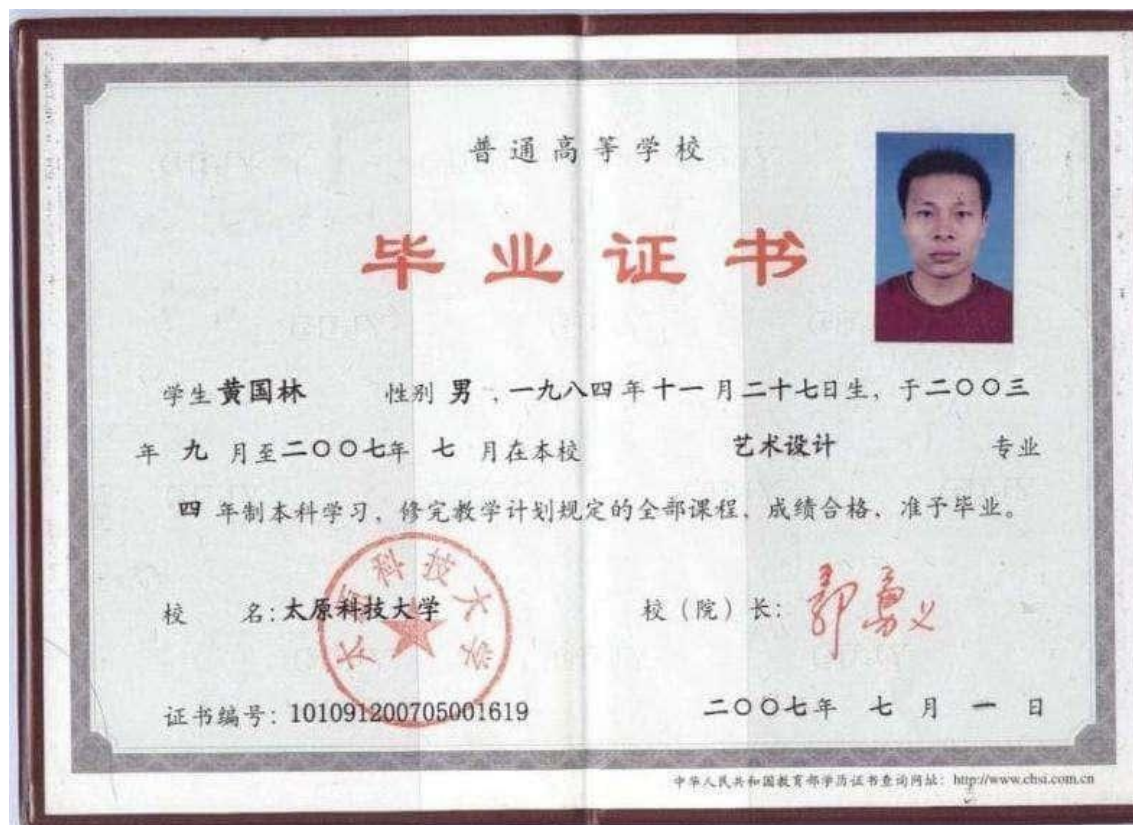 普通高等学校
毕业证书
学生黄国林 性别 男，一九八四年十一月二十七日生，于二〇〇三
年 九 月至二〇〇七年 七 月在本校 艺术设计 专业
四 年制本科学习，修完教学计划规定的全部课程，成绩合格，准予毕业。
太原科技大学
校 名：太原科技大学 校（院）长：郭勇义
证书编号：101091200705001619 二〇〇七年 七 月 一 日
中华人民共和国教育部学历证书查询网址：http://www.chsi.com.cn